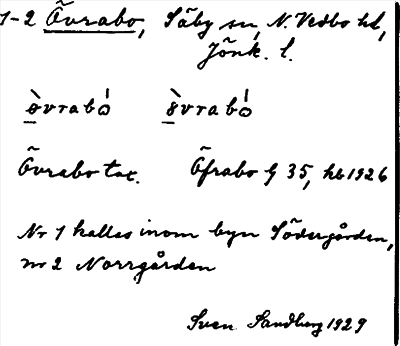 1-2 Övrabo, Säby sn, N. Vedbo hd,
Jönk. l.
òvrabó òvrabó
Övrabo tax. Öfrabo G 35, hb 1926
Nr 1 kallas inom byn Södergården,
nr 2 Norrgården
Sven Sandberg 1929